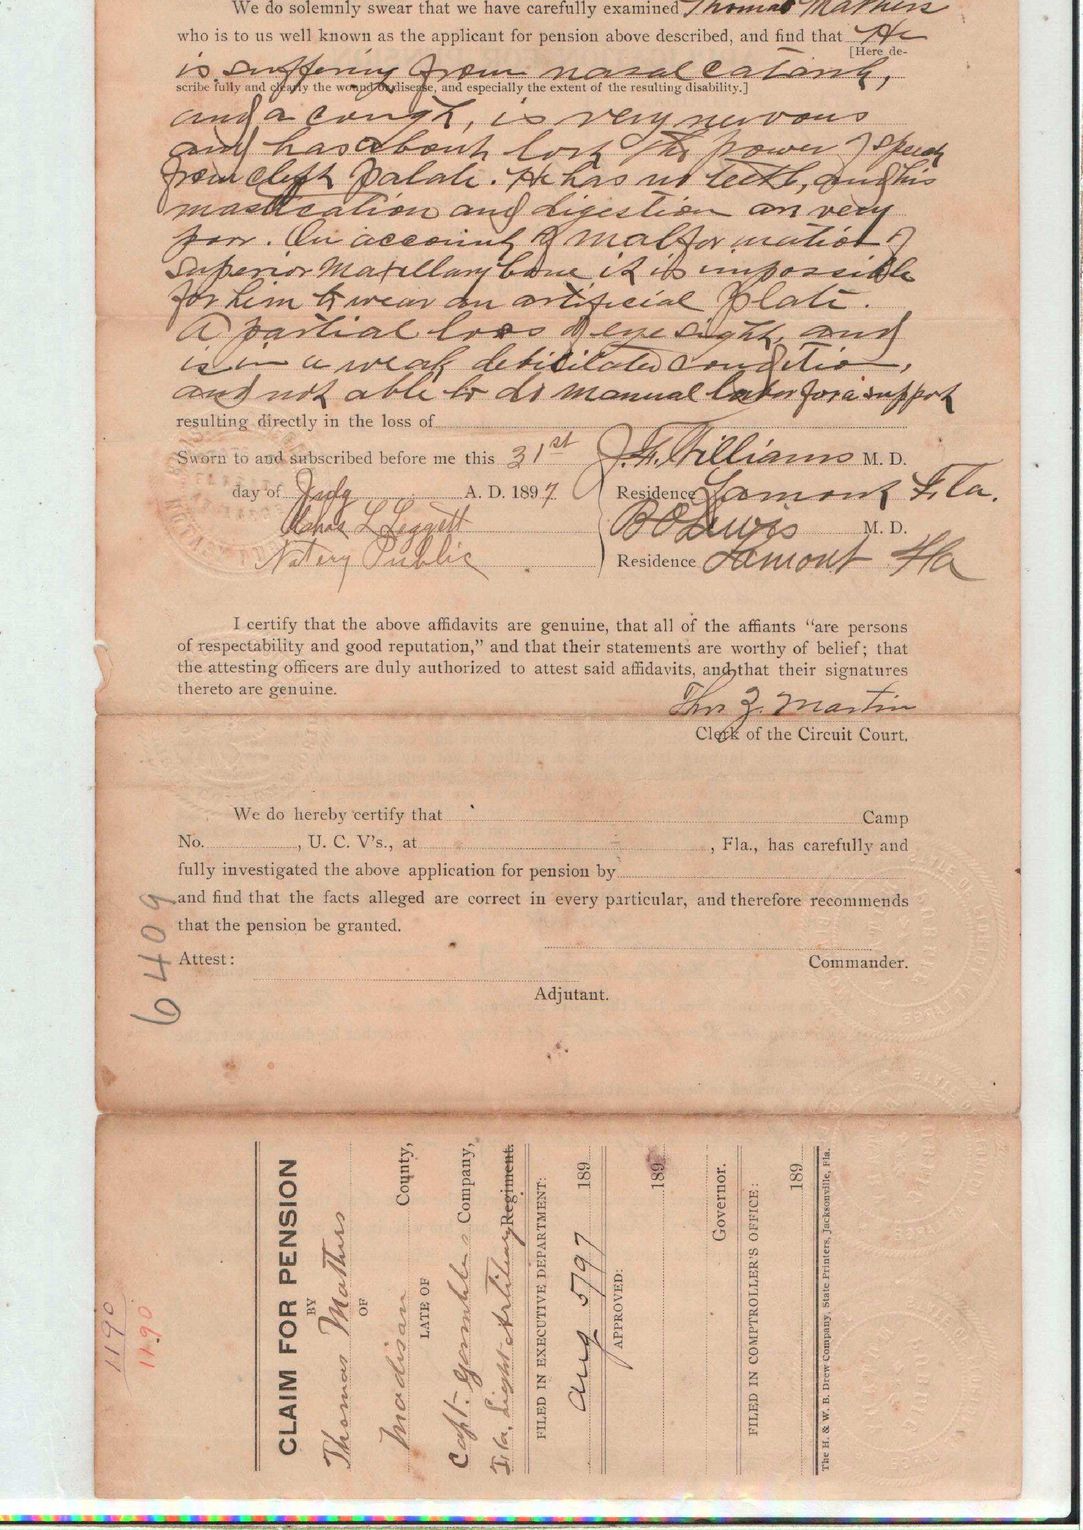 We do solemnly swear that we have carefully examined Thomas Mathers
who is to us well known as the applicant for pension above described, and find that He
[Here de-
is suffering from nasal catarrh,
scribe fully and clearly the wound or disease, and especially the extent of the resulting disability.]
and a cough, is very nervous
and has about lost the power of speech
from cleft palate. He has no teeth, and his
mastication and digestion are very
poor. On account of malformation of
superior maxillary bone it is impossible
for him to wear an artificial plate.
A partial loss of eye sight, and
is in a weak debilitated condition,
and not able to do manual labor for a support
resulting directly in the loss of
Sworn to and subscribed before me this 31st J. F. Williams M. D.
day of July A. D. 1897. Residence Lamont Fla.
Chas L Leggett B O Lewis M. D.
Notary Public Residence Lamont Fla
I certify that the above affidavits are genuine, that all of the affiants "are persons
of respectability and good reputation," and that their statements are worthy of belief; that
the attesting officers are duly authorized to attest said affidavits, and that their signatures
thereto are genuine.
Thos Z. Martin
Clerk of the Circuit Court.
We do hereby certify that Camp
No. , U. C. V's., at , Fla., has carefully and
fully investigated the above application for pension by
and find that the facts alleged are correct in every particular, and therefore recommends
that the pension be granted.
Attest: Commander.
Adjutant.
6409
1190
1190
CLAIM FOR PENSION
BY
Thomas Mathers
OF
Madison County,
LATE OF
Capt. Gambles Company,
Fla. Light Artillery Regiment.
FILED IN EXECUTIVE DEPARTMENT:
Aug 5/97 189
APPROVED:
189
Governor.
FILED IN COMPTROLLER'S OFFICE:
189
The H. & W. B. Drew Company, State Printers, Jacksonville, Fla.